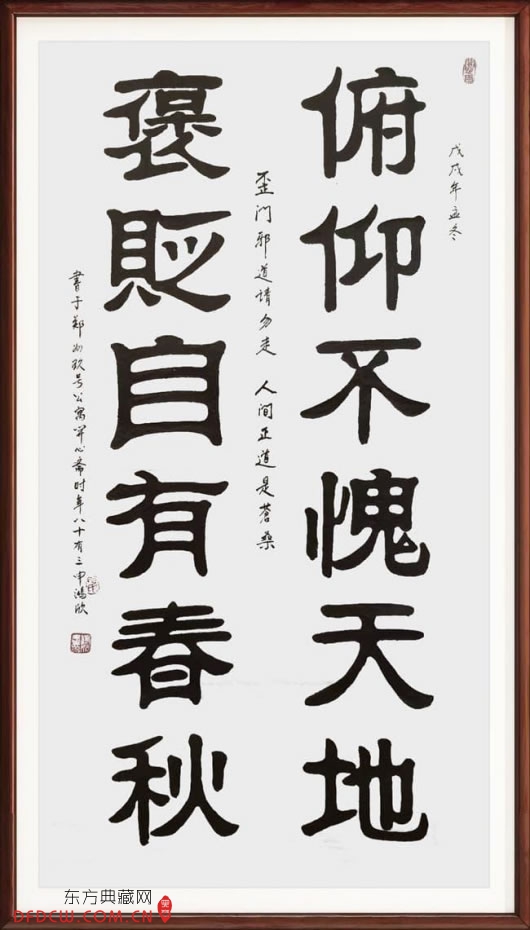 戊戌年孟冬
俯仰不愧天地
歪门邪道请勿走 人间正道是苍桑
褒贬自有春秋
書于郑州玖号公寓开心斋时年八十有三申鸿欣
东方典藏网
DFDCW.COM.CN